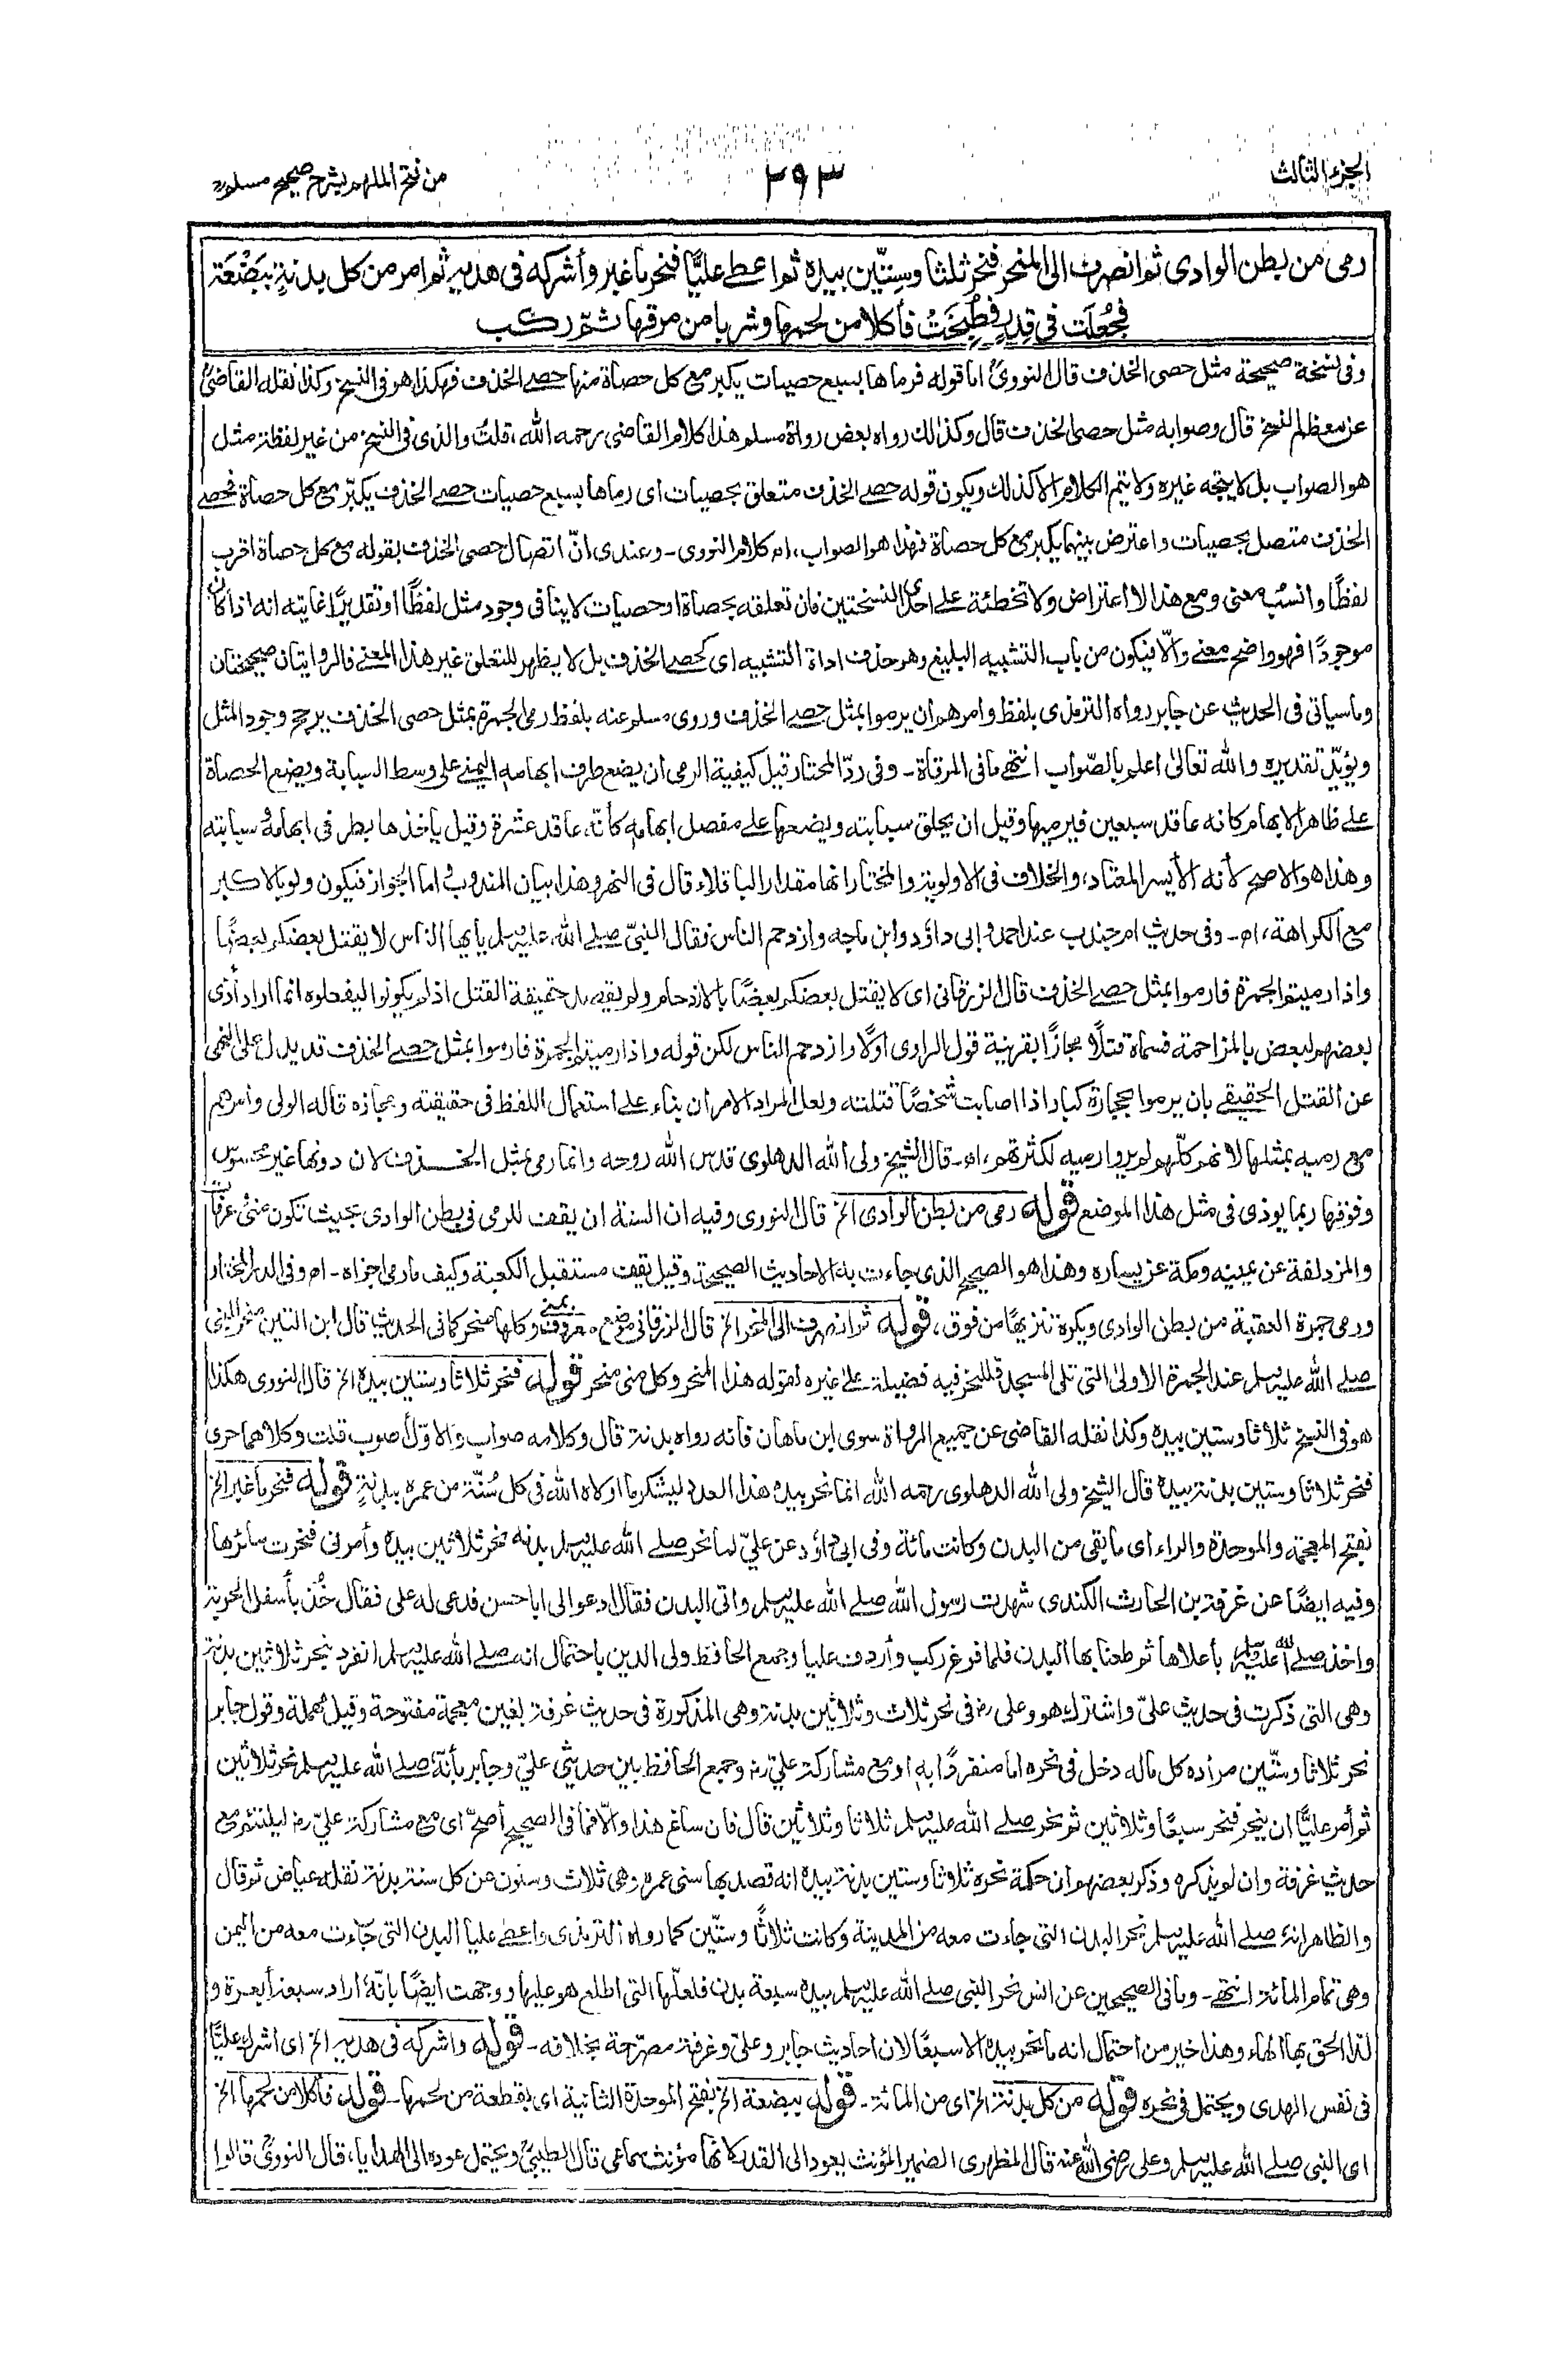 الجزء الثالث
٢٩٣
من فتح الملهم بشرح صحيح مسلم
رمى من بطن الوادى ثم انصرف الى المنحر فنحر ثلثا وستّين بيده ثم اعطى عليًّا فنحر ما غبر وأشركه فى هديه ثم امر من كل بدنةٍ ببَضْعَة
فجُعلَت فى قِدرٍ فطُبِخَتْ فأكلا من لحمها وشربا من مرقها ثمّ ركب
وفى نسخة صحيحة مثل حصى الخذف قال النووىؒ اما قوله فرماها بسبع حصيات يكبر مع كل حصاة منها حصى الخذف فهكذا هو فى النسخ وكذا نقله القاضىؒ
عن معظم النسخ قال وصوابه مثل حصى الخذف قال وكذالك رواه بعض رواة مسلم هذا كلام القاضى رحمه الله، قلت والذى فى النسخ من غير لفظة مثل
هو الصواب بل لا يتجه غيره ولا يتم الكلام الا كذلك ويكون قوله حصى الخذف متعلق بحصيات اى رماها بسبع حصيات حصى الخذف يكبّر مع كل حصاة فحصى
الخذف متصل بحصيات واعترض بينهما يكبر مع كل حصاة فهذا هو الصواب، اه كلام النووى۔ وعندى انّ اتصال حصى الخذف بقوله مع كل حصاة اقرب
لفظًا وانسب معنى ومع هذا لا اعتراض ولا تخطئة على احدى النسختين فان تعلقه بحصاة او حصيات لا ينافى وجود مثل لفظًا او تقديرًا غايته انه اذا كان
موجودًا فهو واضح معنى والّا فيكون من باب التشبيه البليغ وهو حذف اداة التشبيه اى كحصى الخذف بل لا يظهر للتعلق غير هذا المعنى فالروايتان صحيحتان
وما سياتى فى الحديث عن جابر رواه الترمذى بلفظ وامرهم ان يرموا بمثل حصى الخذف وروى مسلم عنه بلفظ رمى الجمرة بمثل حصى الخذف يرجح وجود المثل
ويؤيّد تقديره والله تعالىٰ اعلم بالصّواب انتهى ما فى المرقاة۔ وفى ردّ المحتار قيل كيفية الرمى ان يضع طرف ابهامه اليمنى على وسط السبابة ويضع الحصاة
على ظاهر الابهام كانه عاقد سبعين فيرميها وقيل ان يحلق سبابته ويضعها على مفصل ابهامه كأنّه عاقد عشرة وقيل يأخذها بطرفى ابهامه وسبابته
وهذا هو الاصح لأنه الأيسر المعتاد، والخلاف فى الاولوية والمختار انها مقدار الباقلاء قال فى النهر وهذا بيان المندوب اما الجواز فيكون ولو بالاكبر
مع الكراهة، اه۔ وفى حديث ام جندب عند احمد وابى داؤد وابن ماجه وازدحم الناس فقال النبىّ صلى الله عليه وسلم يا يها الناس لا يقتل بعضكم بعضًا
واذا رميتم الجمرة فارموا بمثل حصى الخذف قال الزرقانى اى لا يقتل بعضكم بعضًا بالازدحام ولم يقصد حقيقة القتل اذ لم يكونوا ليفعلوه انما اراد أذى
بعضهم لبعض بالمزاحمة فسماه قتلًا مجازًا بقرينة قول الراوى اولًا وازدحم الناس لكن قوله واذا رميتم الجمرة فارموا بمثل حصى الخذف قد يدل على النهى
عن القتل الحقيقى بان يرموا بحجارة كبار اذا اصابت شخصًا قتلته ولعل المراد الامران بناء على استعمال اللفظ فى حقيقته ومجازه قاله الولى وامرهم
مع رميه بمثلها لانهم كلّهم لم يروا رميه لكثرتهم، اه۔ قال الشيخ ولى الله الدهلوى قدس الله روحه وانما رمى بمثل الخذف لان دونها غير محسوس
وفوقها ربما يوذى فى مثل هذا الموضع قوله رمى من بطن الوادى الخ قال النووى وفيه ان السنة ان يقف للرمى فى بطن الوادى بحيث تكون منىٰ وعرفات
والمزدلفة عن يمينه ومكة عن يساره وهذا هو الصحيح الذى جاءت به الاحاديث الصحيحة وقيل يقف مستقبل الكعبة وكيف ما رمى اجزاه۔ اه وفى الدر المختار
ورمى جمرة العقبة من بطن الوادى ويكره تنزيهًا من فوق، قوله ثم انصرف الى المنحر الخ قال الزرقانى موضع معروف بمنى وكلها منحر كما فى الحديث قال ابن التين منحر النبى
صلى الله عليه وسلم عند الجمرة الاولىٰ التى تلى المسجد فللنحر فيه فضيلة على غيره لقوله هذا المنحر وكل منى منحر قوله فنحر ثلاثا وستين بيده الخ قال النووى هكذا
هو فى النسخ ثلاثا وستين بيده وكذا نقله القاضى عن جميع الرواة سوى ابن ماهان فانه رواه بدنة قال وكلامه صواب والاوّل أصوب قلت وكلاهما حرى
فنحر ثلاثا وستين بدنة بيده قال الشيخ ولى الله الدهلوى رحمه الله انما نحر بيده هذا العدد ليشكر ما اولاه الله فى كل سَنَة من عمره ببدنةٍ قوله فنحر ما غبر الخ
بفتح المعجمة والموحدة والراء اى ما بقى من البدن وكانت مائة وفى ابى داؤد عن علىّ لما نحر صلى الله عليه وسلم بدنه نحر ثلاثين بيده وأمرنى فنحرت سائرها
وفيه ايضًا عن غرفة بن الحارث الكندى شهدت رسول الله صلى الله عليه وسلم واتى البدن فقال ادعوا لى ابا حسن فدعى له على فقال خُذ بأسفل الحربة
واخذ صلى الله عليه وسلم بأعلاها ثم طعنا بها البدن فلما فرغ ركب وأردف عليا وجمع الحافظ ولى الدين باحتمال انه صلى الله عليه وسلم انفرد بنحر ثلاثين بدنة
وهى التى ذكرت فى حديث علىّ واشترك هو وعلى رضـ فى نحر ثلاث وثلاثين بدنة وهى المذكورة فى حديث غرفة بغين معجمة مفتوحة وقيل مهملة وقول جابر
نحر ثلاثا وستّين مراده كل ما له دخل فى نحره اما منفردًا به او مع مشاركة علىّ رضـ وجمع الحافظ بين حديثى علىّ وجابر بأنّه صلى الله عليه وسلم نحر ثلاثين
ثم أمر عليًّا ان ينحر فنحر سبعًا وثلاثين ثم نحر صلى الله عليه وسلم ثلاثا وثلاثين قال فان ساغ هذا والّا فما فى الصحيح أصحّ اى مع مشاركة علىّ رضـ ليلتئم مع
حديث غرفة وان لم يذكره وذكر بعضهم ان حكمة نحره ثلاثا وستين بدنة بيده انه قصد بها سنى عمره وهى ثلاث وستون عن كل سنة بدنة نقله عياض ثم قال
والظاهر انهؐ صلى الله عليه وسلم نحر البدن التى جاءت معه من المدينة وكانت ثلاثًا وستّين كما رواه الترمذى واعطى عليا البدن التى جاءت معه من اليمن
وهى تمام المائة انتهى۔ وما فى الصحيحين عن انس نحر النبى صلى الله عليه وسلم بيده سبعة بدن فلعلّها التى اطلع هو عليها ووجهت ايضًا بانّه اراد سبعة أبعرة و
لذا الحق بها الهاء وهذا خير من احتمال انه ما نحر بيده الا سبعًا لان احاديث جابر وعلىّ وغرفة مصرّحة بخلافه۔ قوله واشركه فى هديه الخ اى اشرك عليًّا
فى نفس الهدى ويحتمل فى نحره قوله من كل بدنة الخ اى من المائة۔ قوله ببضعة الخ بفتح الموحدة الثانية اى بقطعة من لحمها۔ قوله فأكلا من لحمها الخ
اى النبى صلى الله عليه وسلم وعلى رضى الله عنه قال المظهرى الضمير المؤنث يعود الى القدر لانها مؤنث سماعى قال الطيبىؒ ويحتمل عوده الى الهدايا، قال النووىؒ قالوا